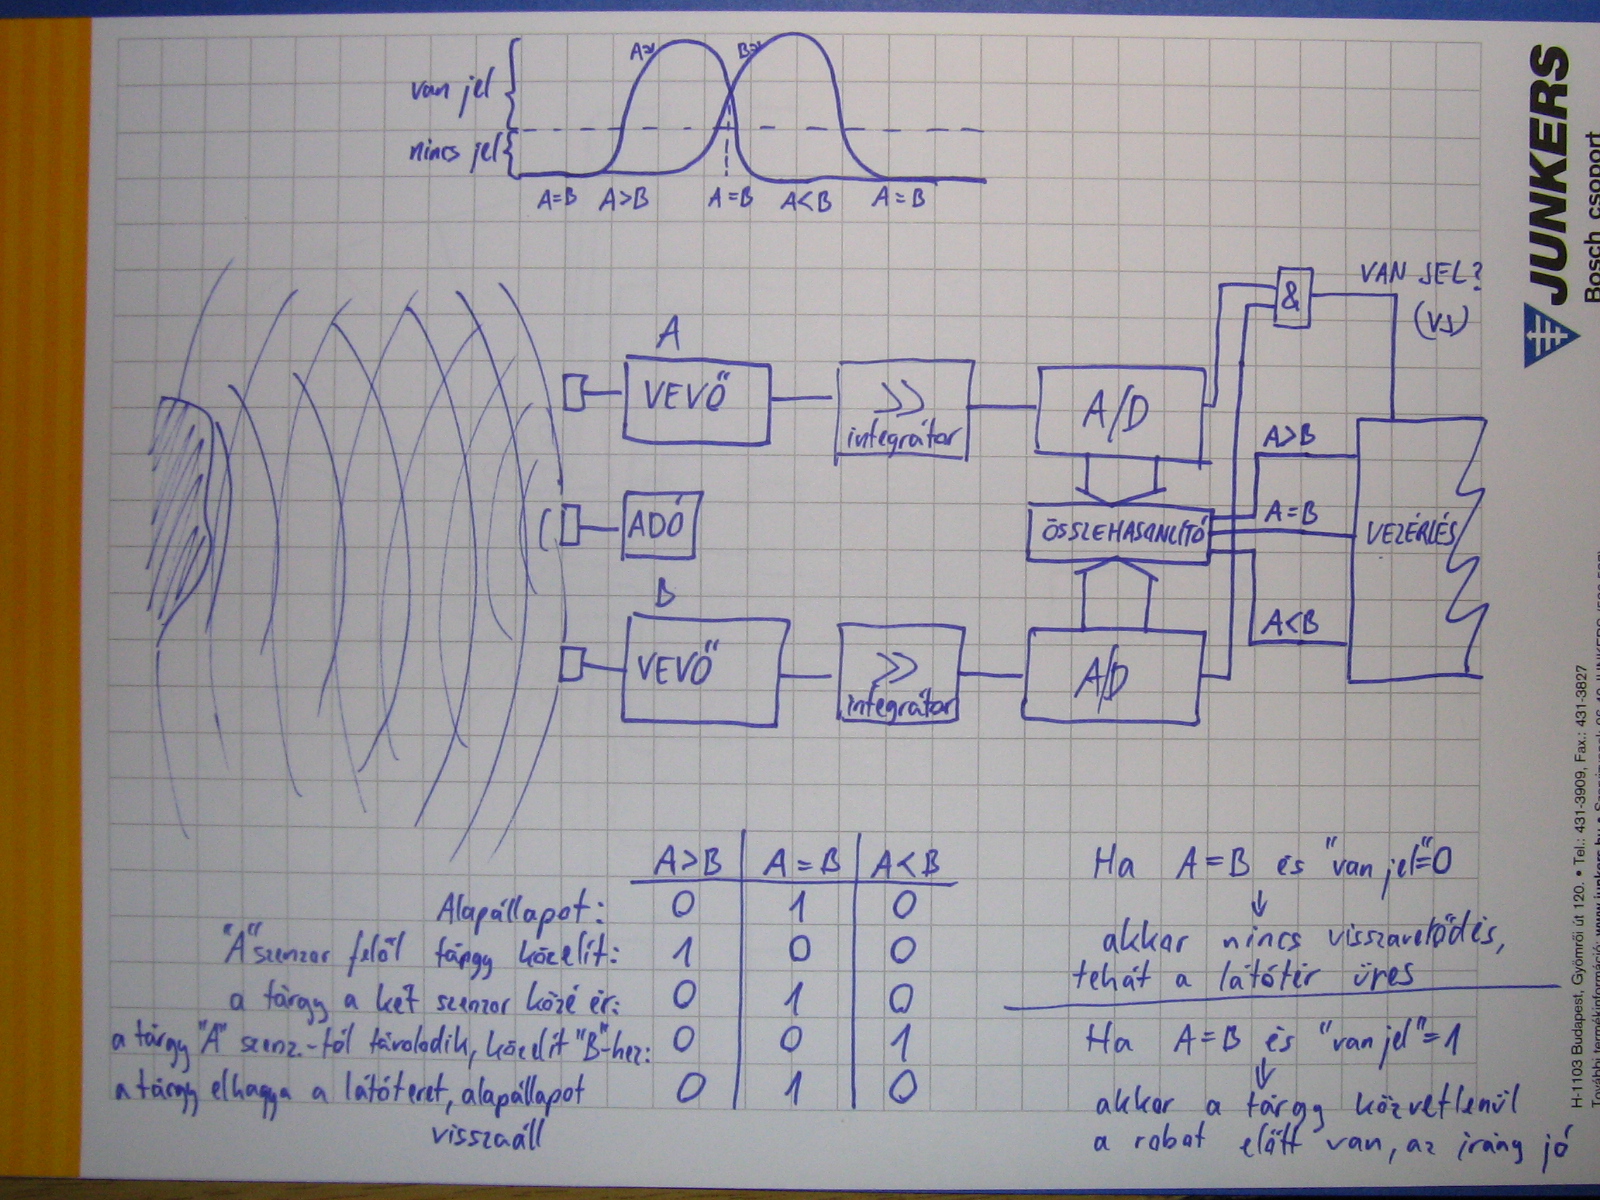 van jel
nincs jel
A=B A>B A=B A<B A=B
VAN JEL?
(VJ)
&
A
VEVŐ
>>
integrátor
A/D
A>B
ADÓ
ÖSSZEHASONLÍTÓ
A=B
VEZÉRLÉS
B
VEVŐ
>>
integrátor
A/D
A<B
A>B A=B A<B
Alapállapot: 0 1 0
"A" szenzor felől tárgy közelít: 1 0 0
a tárgy a két szenzor közé ér: 0 1 0
a tárgy "A" szenz.-tól távolodik, közelít "B"-hez: 0 0 1
a tárgy elhagyja a látóteret, alapállapot 0 1 0
visszaáll
Ha A=B és "van jel"=0
↓
akkor nincs visszaverődés,
tehát a látótér üres
Ha A=B és "van jel"=1
↓
akkor a tárgy közvetlenül
a robot előtt van, az irány jó
JUNKERS
Bosch csoport
H-1103 Budapest, Gyömrői út 120. • Tel.: 431-3909, Fax.: 431-3827
További termékinformáció: www.junkers.hu •